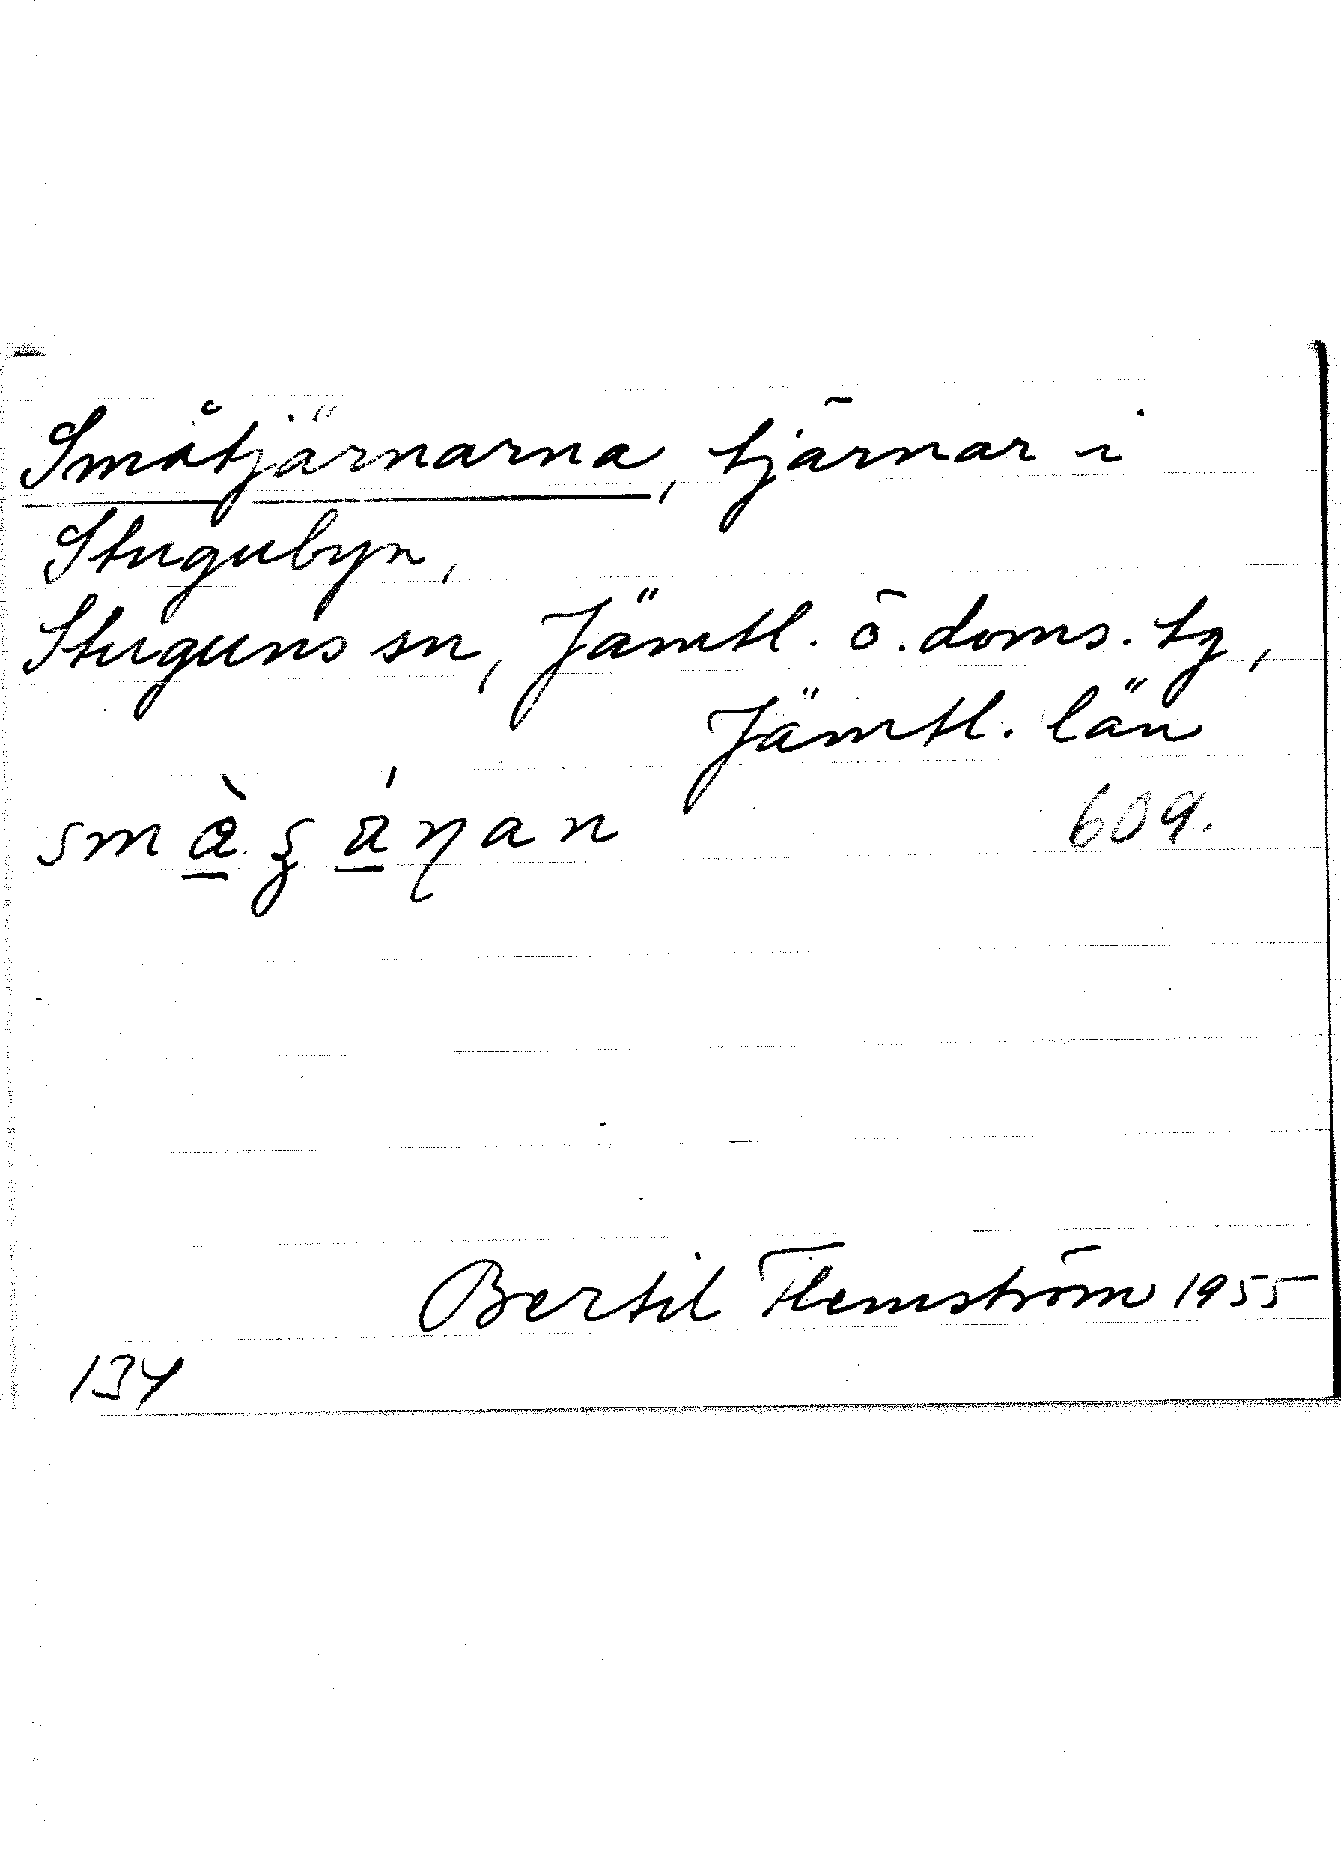 Småtjärnarna, tjärnar i
Stugubyn,
Stuguns sn, Jämtl. ö. doms. tg,
Jämtl. län
609.
Bertil Flemström 1955
134